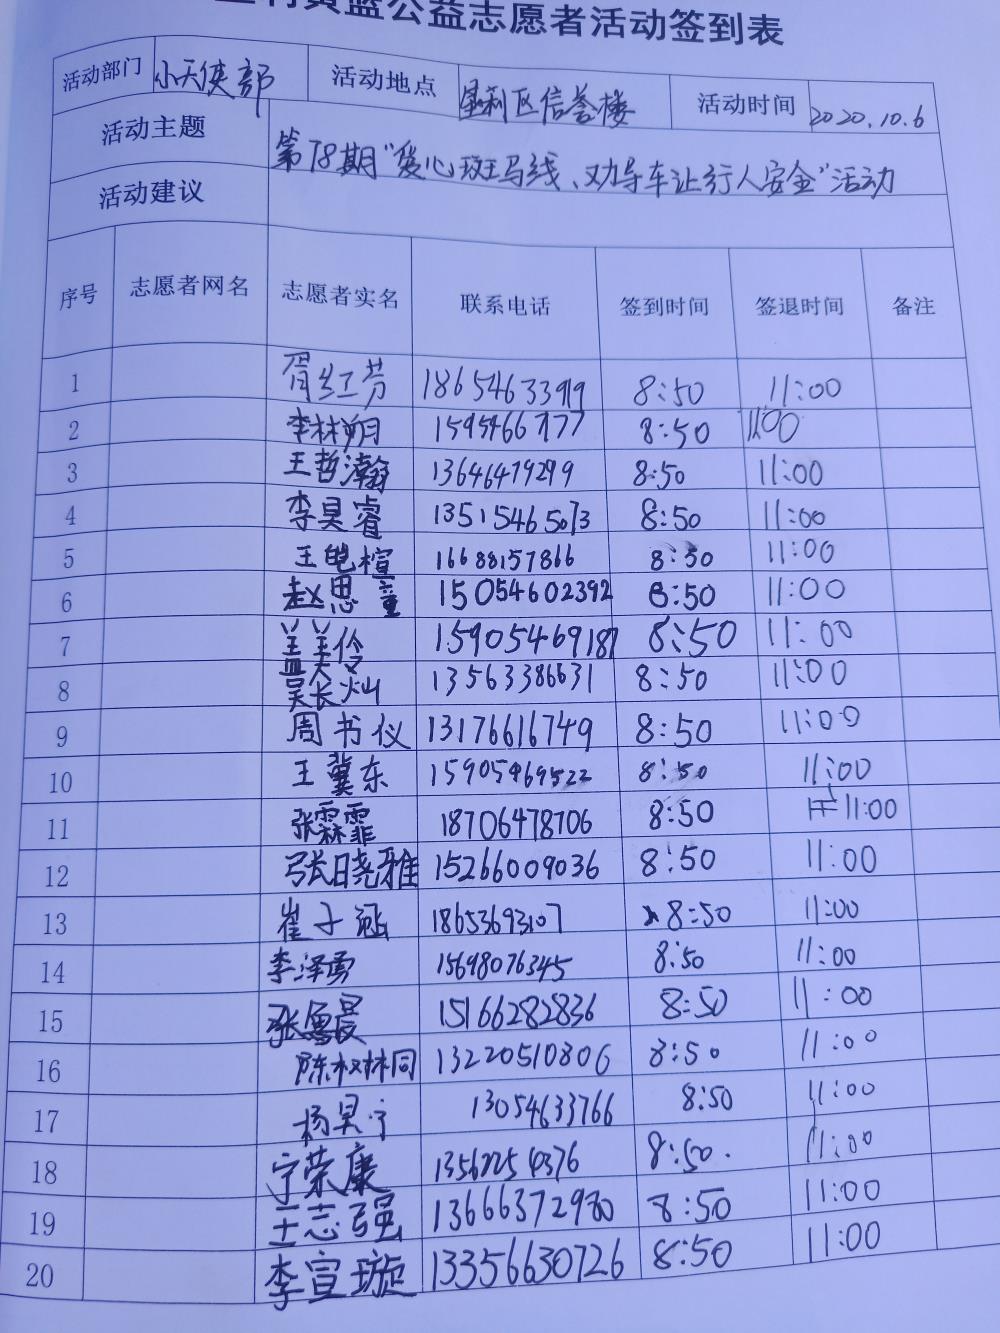 公益志愿者活动签到表
活动部门 小天使部 活动地点 垦利区信誉楼 活动时间 2020.10.6
活动主题 第78期"爱心斑马线、劝导车让行人安全"活动
活动建议
序号 志愿者网名 志愿者实名 联系电话 签到时间 签退时间 备注
1 胥红芳 18654633919 8:50 11:00
2 李林朔 8:50 11:00
3 王哲瀚 13646479299 8:50 11:00
4 李昊睿 13515465073 8:50 11:00
5 16688157866 8:50 11:00
6 赵思童 15054602392 8:50 11:00
7 盖美伶 15905469187 8:50 11:00
8 吴长灿 13563386631 8:50 11:00
9 周书仪 13176616749 8:50 11:00
10 王冀东 15905469522 8:50 11:00
11 张霖霏 18706478706 8:50 11:00
12 张晓雅 15266009036 8:50 11:00
13 崔子涵 18653693107 8:50 11:00
14 李泽勇 15698076345 8:50 11:00
15 15166282836 8:50 11:00
16 陈权林同 13220510806 8:50 11:00
17 杨昊宁 13054633766 8:50 11:00
18 宁荣康 8:50. 11:00
19 王志强 8:50 11:00
20 李宣璇 13356630726 8:50 11:00